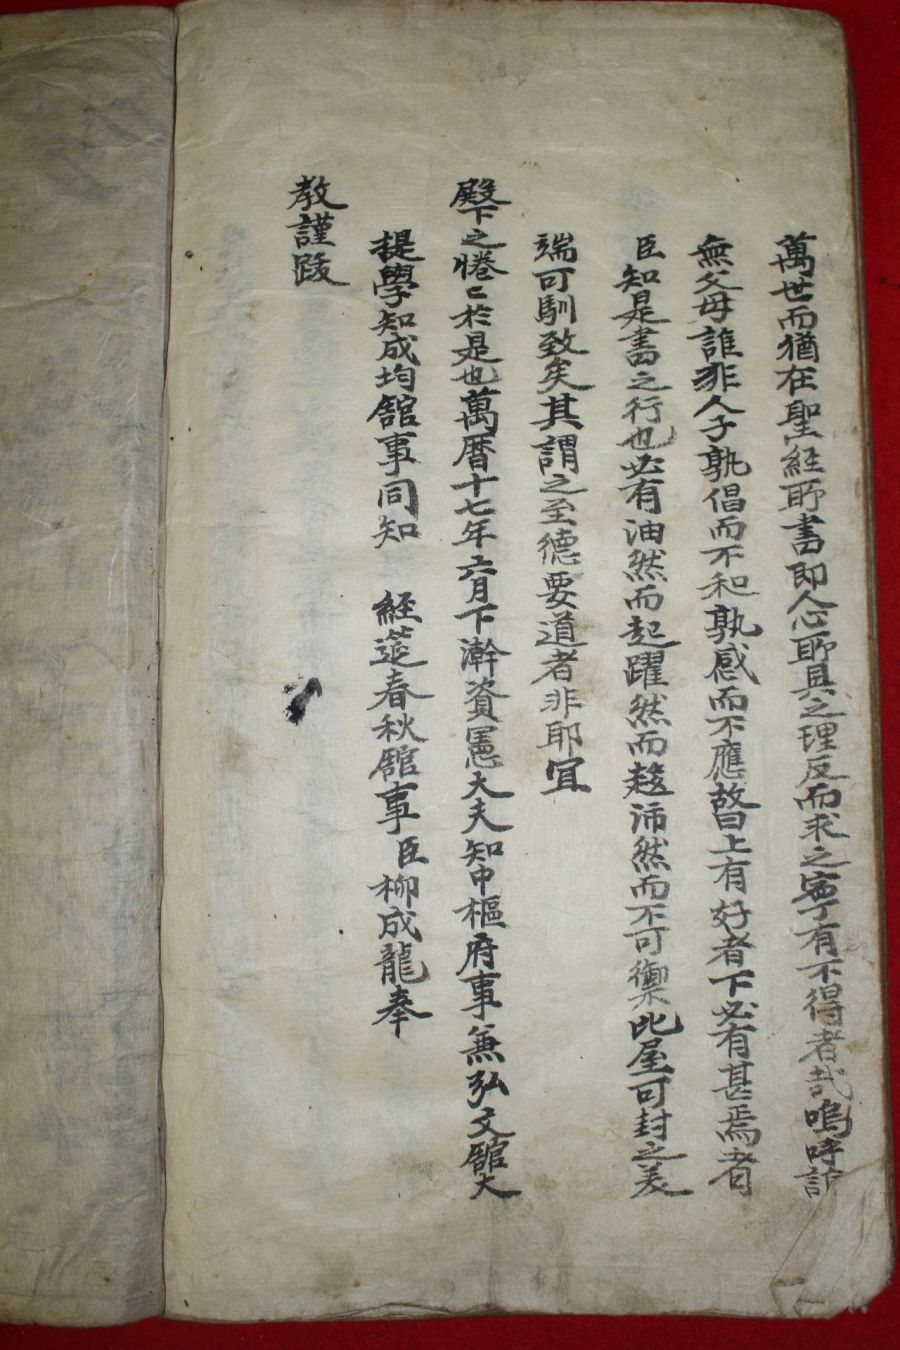 萬世而猶在聖経所書即人心所具之理反而求之寧有不得者哉嗚呼誰
無父母誰非人子孰倡而不和孰感而不應故曰上有好者下必有甚焉者
臣知是書之行也必有油然而起躍然而趍沛然而不可禦比屋可封之美
端可馴致矣其謂之至德要道者非耶冝
殿下之惓〻於是也萬曆十七年六月下澣資憲大夫知中樞府事兼弘文館大
提學知成均館事同知 経筵春秋館事臣柳成龍奉
教謹跋